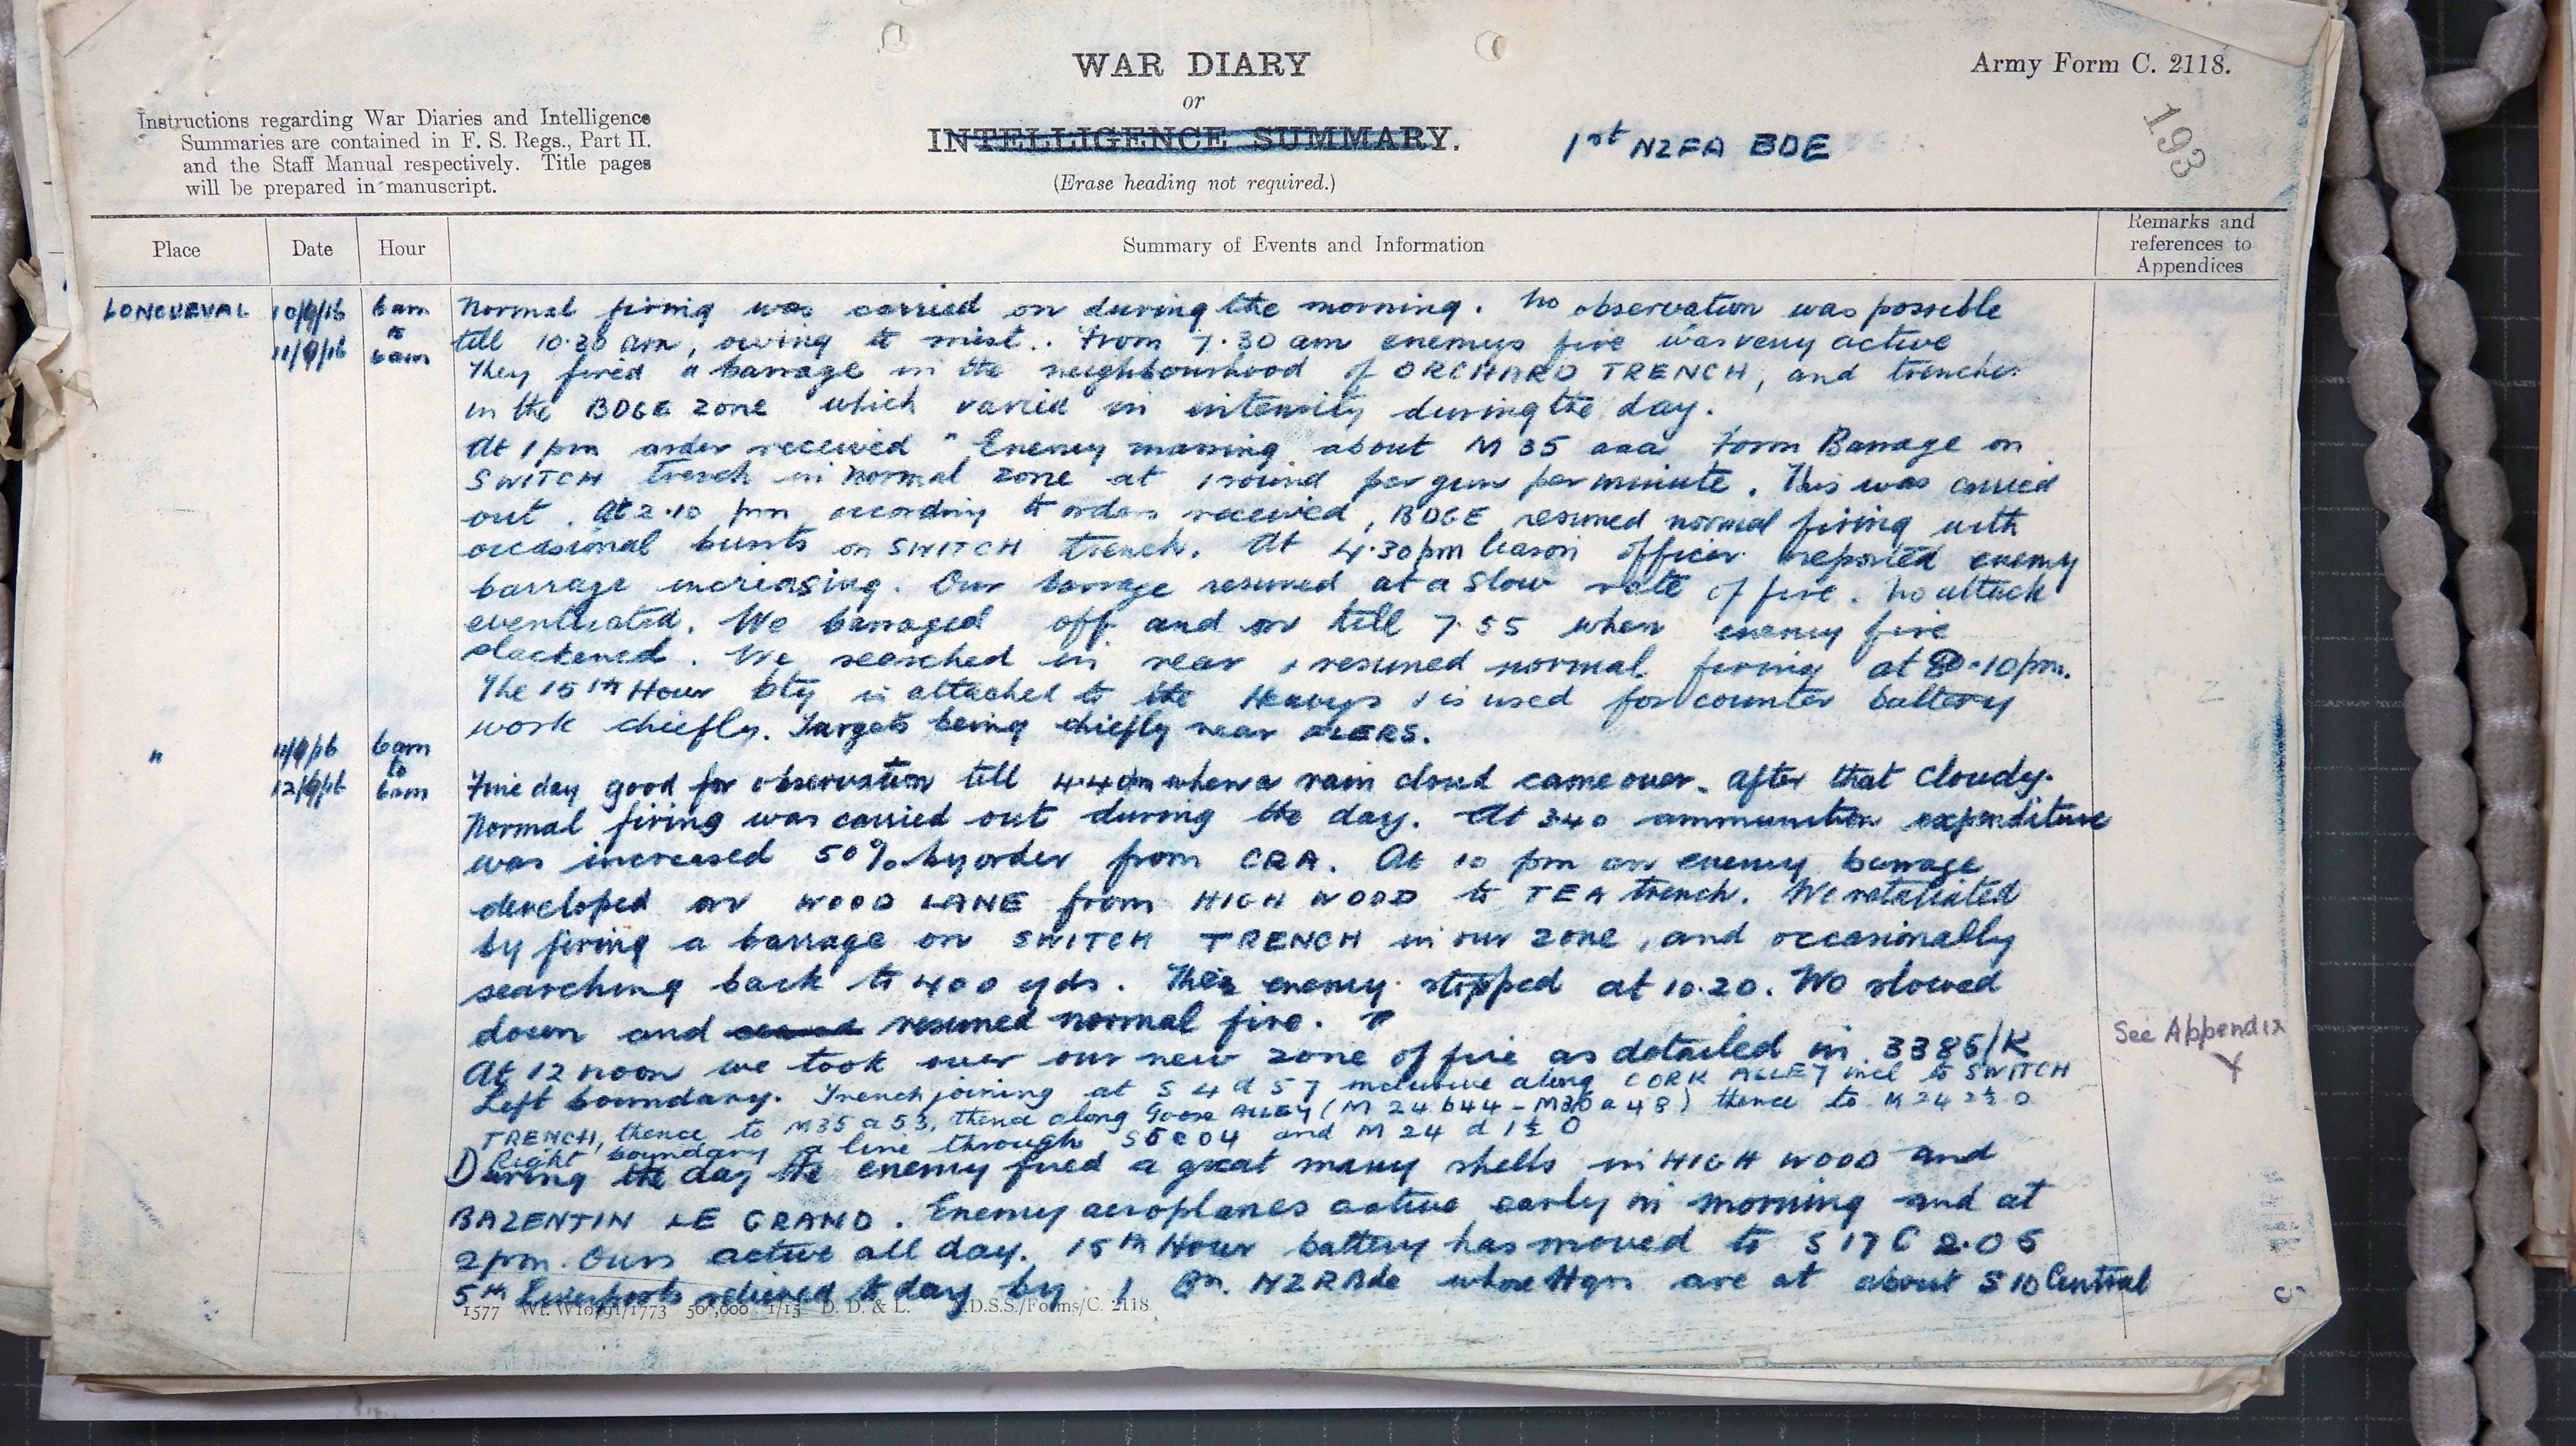 WAR DIARY
or
INTELLIGENCE SUMMARY.
(Erase heading not required.)
Army Form C. 2118.
193
1st NZFA BDE
Instructions regarding War Diaries and Intelligence
Summaries are contained in F. S. Regs., Part II.
and the Staff Manual respectively. Title pages
will be prepared in manuscript.
Place Date Hour Summary of Events and Information Remarks and
references to
Appendices
LONGUEVAL 10/9/16 6am Normal firing was carried on during the morning. No observation was possible
to
11/9/16 6am till 10.30 am, owing to mist.. From 7.30 am enemys fire was very active
They fired a barrage in the neighbourhood of ORCHARD TRENCH, and trenches
in the BDGE zone which varied in intensity during the day.
At 1 pm order received "Enemy massing about M 35 aaa Form Barrage on
SWITCH trench in normal zone at 1 round per gun per minute. This was carried
out. At 2.10 pm according to orders received, BDGE resumed normal firing with
occasional bursts on SWITCH trench. At 4.30pm liason officer reported enemy
barrage increasing. Our barrage resumed at a slow rate of fire. No attack
eventuated. We barraged off and on till 7.55 when enemy fire
slackened. We searched in rear & resumed normal firing at 8.10pm.
The 15th Howr bty is attached to the Heavys & is used for counter battery
work chiefly. Targets being chiefly near FLERS.
" 11/9/16 6am
to
12/9/16 6am Fine day good for observation till 4.4 pm when a rain cloud came over. After that cloudy.
Normal firing was carried out during the day. At 340 ammunition expenditure
was increased 50% by order from CRA. At 10 pm an enemy barrage
developed on WOOD LANE from HIGH WOOD to TEA trench. We retaliated
by firing a barrage on SWITCH TRENCH in our zone, and occasionally
searching back to 400 yds. The enemy stopped at 10.20. We slowed
down and resumed normal fire.
At 12 noon we took over our new zone of fire as detailed in 3385/K
See Appendix
Y
Left boundary. Trench joining at S 4 d 5 7 inclusive along CORK ALLEY incl to SWITCH
TRENCH, thence to M35 a 53, thence along Goose ALLEY (M 24 b 44 - M30 a 48) thence to M 24 2½ 0
Right boundary a line through S5 c 04 and M 24 d 1½ 0
During the day the enemy fired a great many shells in HIGH WOOD and
BAZENTIN LE GRAND. Enemy aeroplanes active early in morning and at
2pm. Ours active all day. 15th Howr battery has moved to S 17 C 2.05
5th Liverpools relieved to day by 1 Bn. NZRBde whose Hqrs are at about S 10 Central
1577 Wt. 50,000 1/15 D. D. & L. A.D.S.S./Forms/C. 2118